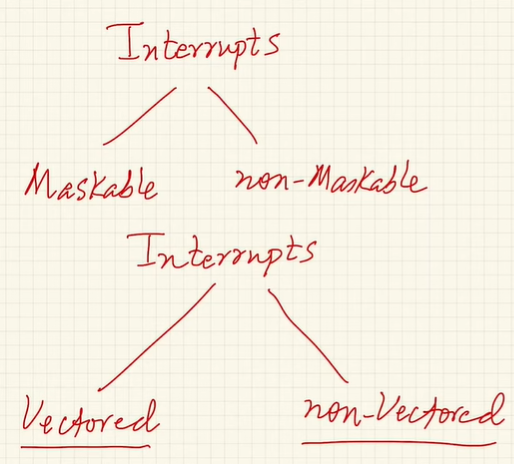 Interrupts
Maskable non-Maskable
Interrupts
Vectored non-Vectored